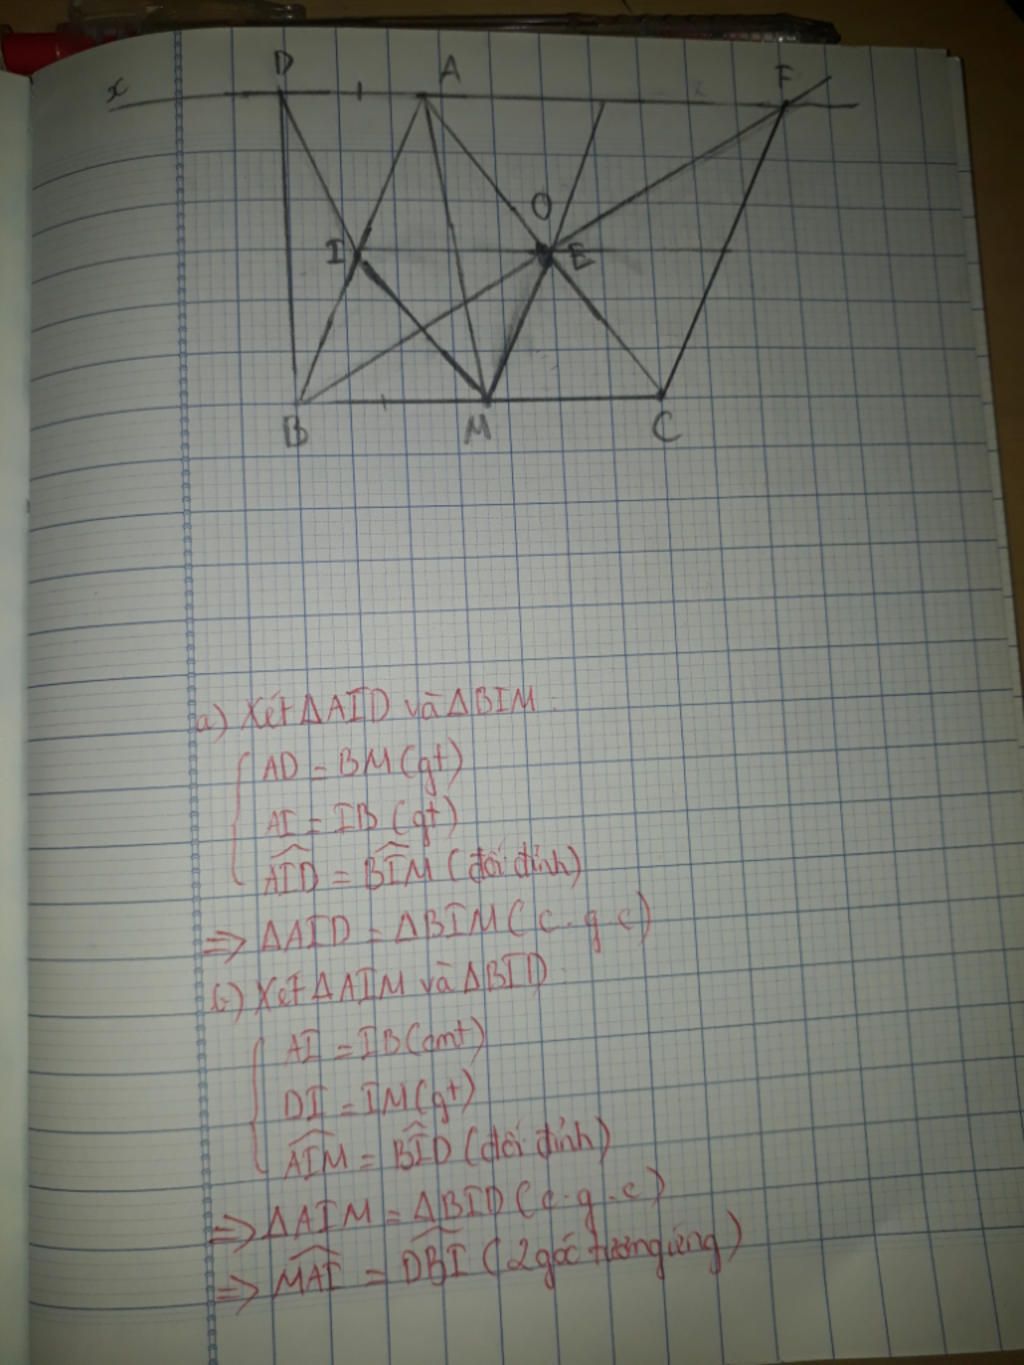 D A F
x
O
I E
B M C
a) Xét ΔAID và ΔBIM:
AD = BM (gt)
AI = IB (gt)
∠AID = ∠BIM (đối đỉnh)
=> ΔAID = ΔBIM (c.g.c)
b) Xét ΔAIM và ΔBID:
AI = IB (cmt)
DI = IM (gt)
∠AIM = ∠BID (đối đỉnh)
=> ΔAIM = ΔBID (c.g.c)
=> ∠MAI = ∠DBI (2 góc tương ứng)